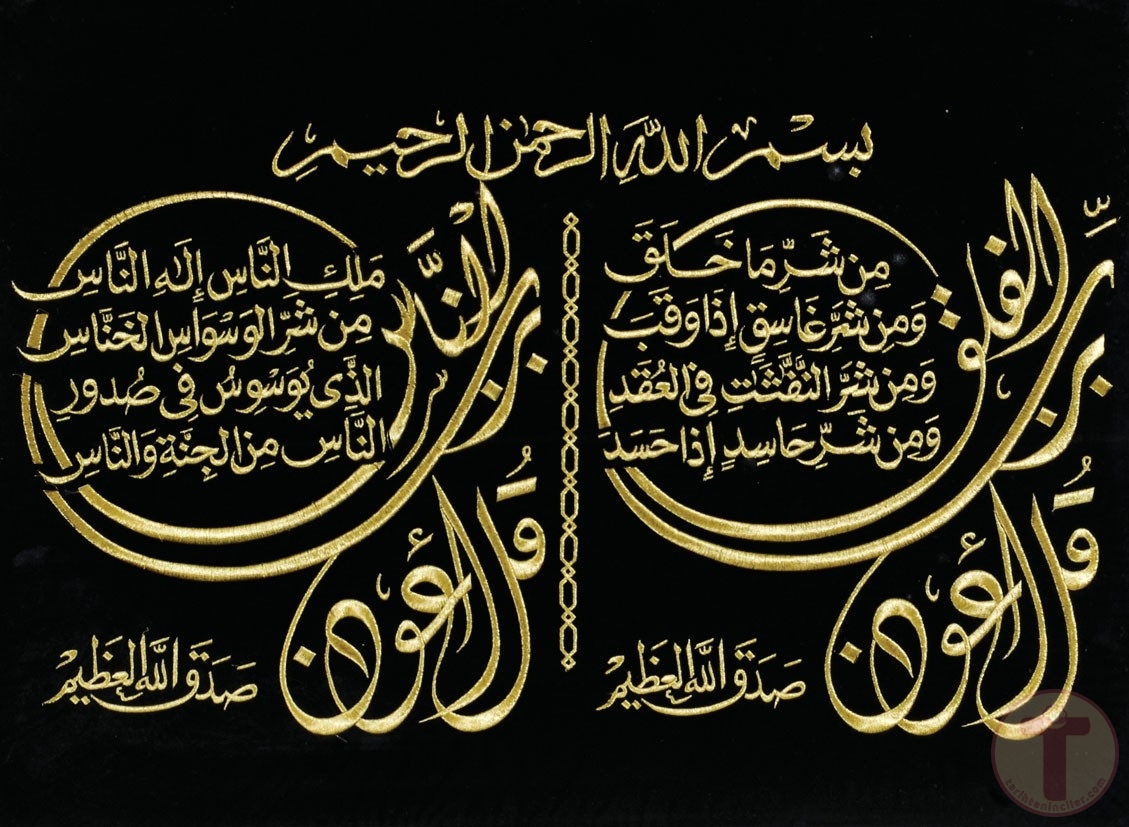 بسم الله الرحمن الرحيم
قل أعوذ
برب الفلق
مِن شَرِّ مَا خَلَقَ
وَمِن شَرِّ غَاسِقٍ إِذَا وَقَبَ
وَمِن شَرِّ النَّفَّثَتِ فِي العُقَدِ
وَمِن شَرِّ حَاسِدٍ إِذَا حَسَدَ
صَدَقَ اللَّهُ العَظِيمُ
قل أعوذ
برب الناس
مَلِكِ النَّاسِ إِلَهِ النَّاسِ
مِن شَرِّ الوَسْوَاسِ الخَنَّاسِ
الَّذِي يُوَسْوِسُ فِي صُدُورِ
النَّاسِ مِنَ الجِنَّةِ وَالنَّاسِ
صَدَقَ اللَّهُ العَظِيمُ
T
tarihteninciler.com